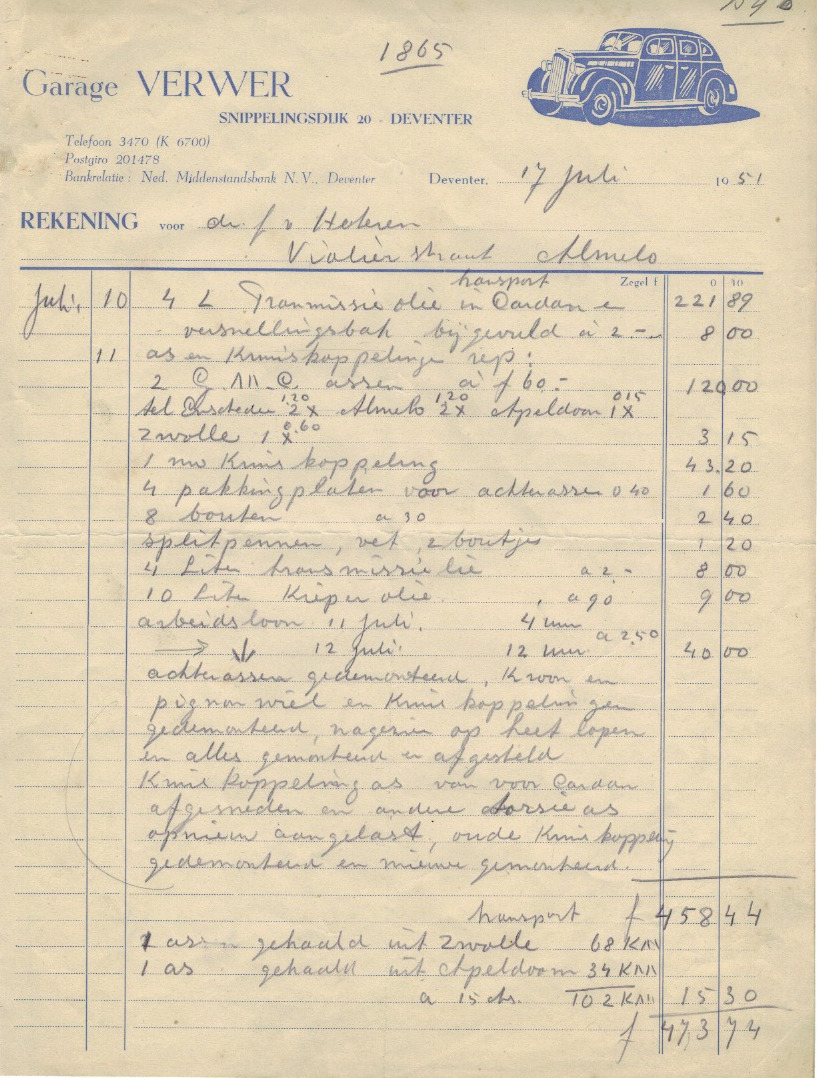 1865
Garage VERWER
SNIPPELINGSDIJK 20 - DEVENTER
Telefoon 3470 (K 6700)
Postgiro 201478
Bankrelatie: Ned. Middenstandsbank N.V., Deventer
Deventer, 17 Juli 1951
REKENING voor dr. J v Heteren
Violierstraat Almelo
transport Zegel f 0 10
Juli. 10 4 L Tranmissie olie in Cardan e 221 89
versnellingsbak bijgevuld à 2.- 8 00
11 as en Kruiskoppelinge rep:
2 G.M.C. assen à f 60.- 120 00
1.20 1.20 0 15
tel Enschede 2x Almelo 2x Apeldoorn 1x
0.60
Zwolle 1 x 3 15
1 nw Kruis koppeling 43.20
4 pakkingplaten voor achterassen 0 40 1 60
8 bouten a 30 2 40
splitpennen, vet, 2 boutjes 1 20
4 Liter transmissielie a 2.- 8 00
10 Liter Kieper olie a 90 9 00
arbeidsloon 11 Juli. 4 uur
a 2.50
12 Juli. 12 uur 40 00
achterassen gedemonteerd, Kroon en
pignon wiel en Kruis koppelingen
gedemonteerd, nagezien op heet lopen
en alles gemonteerd en afgesteld
Kruis koppeling as van voor Cardan
afgesneden en andere torsie as
opnieuw aangelast, oude Kruis koppeling
gedemonteerd en nieuwe gemonteerd.
transport f 458 44
1 as gehaald uit Zwolle 68 KM
1 as gehaald uit Apeldoorn 34 KM
a 15 cts. 102 KM 15 30
f 473 74